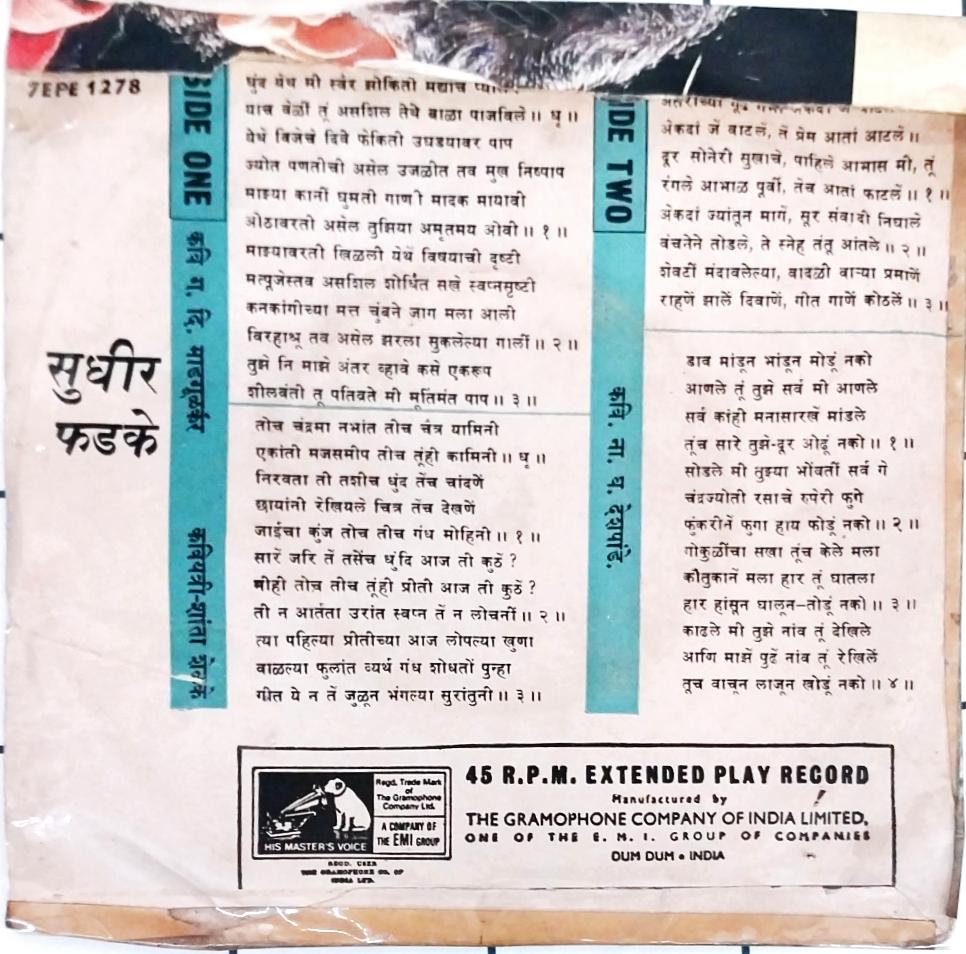 7EPE 1278
सुधीर
फडके
SIDE ONE
कवि ग. दि. माडगूळकर
धुंद येथ मी स्वैर झोकितो मद्याचे
याच वेळीं तूं असशिल तेथे बाळा पाजविले ॥ धृ ॥
येथे विजेचे दिवे फेकिती उघड्यावर पाप
ज्योत पणतीची असेल उजळीत तव मुख निष्पाप
माझ्या कानीं घुमती गाणी मादक मायावी
ओठावरती असेल तुझिया अमृतमय ओवी ॥ १ ॥
माझ्यावरती खिळली येथें विषयाची दृष्टी
मत्पूजेस्तव असशिल शोधित सखे स्वप्नसृष्टी
कनकांगीच्या मत्त चुंबने जाग मला आली
विरहाश्रू तव असेल झरला सुकलेल्या गालीं ॥ २ ॥
तुझे नि माझे अंतर व्हावे कसे एकरूप
शीलवंती तू पतिव्रते मी मूर्तिमंत पाप ॥ ३ ॥
कवियत्री-शांता शेळके
तोच चंद्रमा नभांत तीच चैत्र यामिनी
एकांती मजसमीप तीच तूंही कामिनी ॥ धृ ॥
निरवता ती तशीच धुंद तेंच चांदणें
छायांनी रेखियले चित्र तेंच देखणें
जाईचा कुंज तोच तीच गंध मोहिनी ॥ १ ॥
सारें जरि तें तसेंच धुंदि आज ती कुठें ?
मीही तोच तीच तूंही प्रीती आज ती कुठें ?
ती न आर्तता उरांत स्वप्न तें न लोचनीं ॥ २ ॥
त्या पहिल्या प्रीतीच्या आज लोपल्या खुणा
वाळल्या फुलांत व्यर्थ गंध शोधतों पुन्हा
गीत ये न तें जुळून भंगल्या सुरांतुनी ॥ ३ ॥
SIDE TWO
कवि. ना. घ. देशपांडे.
अंतरीच्या गूढ
अेकदां जें वाटलें, तें प्रेम आतां आटलें ॥
दूर सोनेरी सुखाचे, पाहिले आभास मी, तूं
रंगले आभाळ पूर्वी, तेच आतां फाटलें ॥ १ ॥
अेकदां ज्यांतून मागें, सूर संवादी निघाले
वंचनेने तोडले, ते स्नेह तंतू आंतले ॥ २ ॥
शेवटीं मंदावलेल्या, वादळी वाऱ्या प्रमाणें
राहणें झालें दिवाणें, गीत गाणें कोठलें ॥ ३ ॥
डाव मांडून भांडून मोडूं नको
आणले तूं तुझे सर्व मी आणले
सर्व कांही मनासारखें मांडले
तूंच सारे तुझे-दूर ओढूं नको ॥ १ ॥
सोडले मी तुझ्या भोंवतीं सर्व गे
चंद्रज्योती रसाचे रुपेरी फुगे
फुंकरीनें फुगा हाय फोडूं नको ॥ २ ॥
गोकुळींचा सखा तूंच केले मला
कौतुकानें मला हार तूं घातला
हार हांसून घालून-तोडूं नको ॥ ३ ॥
काढले मी तुझे नांव तूं देखिले
आणि माझें पुढें नांव तूं रेखिलें
तूच वाचून लाजून खोडूं नको ॥ ४ ॥
HIS MASTER'S VOICE
Regd. Trade Mark
of
The Gramophone
Company Ltd.
A COMPANY OF
THE EMI GROUP
REGD. USER
THE GRAMOPHONE CO. OF
INDIA LTD.
45 R.P.M. EXTENDED PLAY RECORD
Manufactured by
THE GRAMOPHONE COMPANY OF INDIA LIMITED,
ONE OF THE E. M. I. GROUP OF COMPANIES
DUM DUM • INDIA